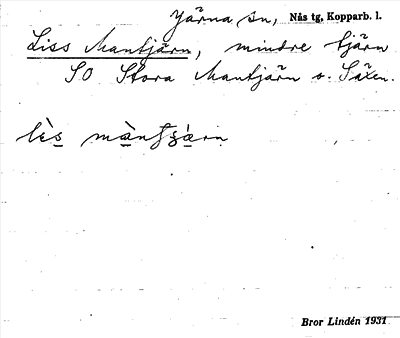 Järna sn, Nås tg, Kopparb. l.
Liss Mantjärn, mindre tjärn
SO Stora Mantjärn o. Säxen.
Bror Lindén 1931